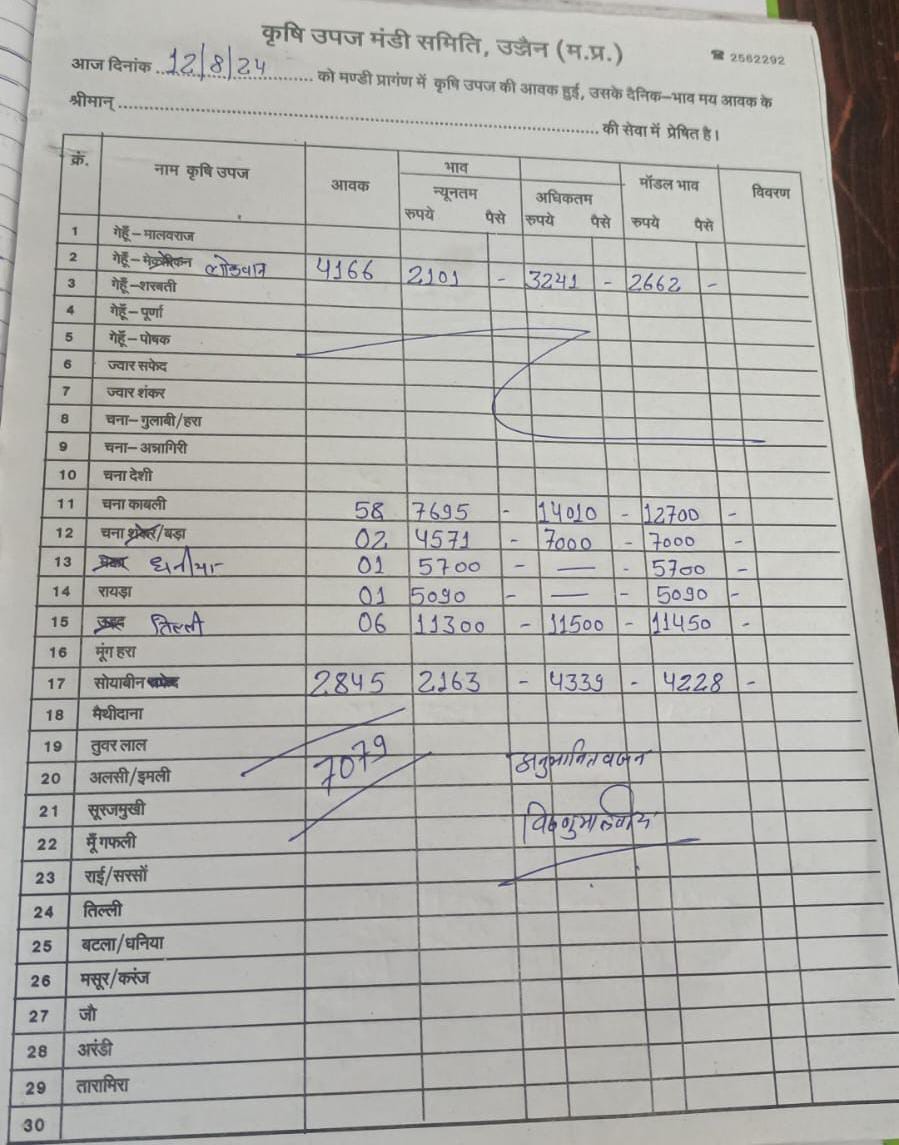 कृषि उपज मंडी समिति, उज्जैन (म.प्र.)
☎ 2562292
आज दिनांक 12/8/24 को मण्डी प्रागंण में कृषि उपज की आवक हुई, उसके दैनिक-भाव मय आवक के
श्रीमान् की सेवा में प्रेषित है।
क्रं. नाम कृषि उपज आवक भाव मॉडल भाव विवरण
न्यूनतम अधिकतम
रुपये पैसे रुपये पैसे रुपये पैसे
1 गेहूँ-मालवराज
2 गेहूँ- लोकवान 4166 2101 - 3241 - 2662 -
3 गेहूँ-शरबती
4 गेहूँ-पूर्णा
5 गेहूँ-पोषक
6 ज्वार सफेद
7 ज्वार शंकर
8 चना-गुलाबी/हरा
9 चना-अन्नागिरी
10 चना देशी
11 चना काबली 58 7695 - 14010 - 12700 -
12 चना शंकर/बड़ा 02 4571 - 7000 - 7000 -
13 धनीया 01 5700 - — - 5700 -
14 रायड़ा 01 5090 - — - 5090 -
15 उड़द तिल्ली 06 11300 - 11500 - 11450 -
16 मूंग हरा
17 सोयाबीन सफेद 2845 2163 - 4339 - 4228 -
18 मैथीदाना
19 तुवर लाल
7079 अनुमानित वजन
20 अलसी/इमली
21 सूरजमुखी
22 मूँगफली
23 राई/सरसों
24 तिल्ली
25 बटला/धनिया
26 मसूर/करंज
27 जौ
28 अरंडी
29 तारामिरा
30